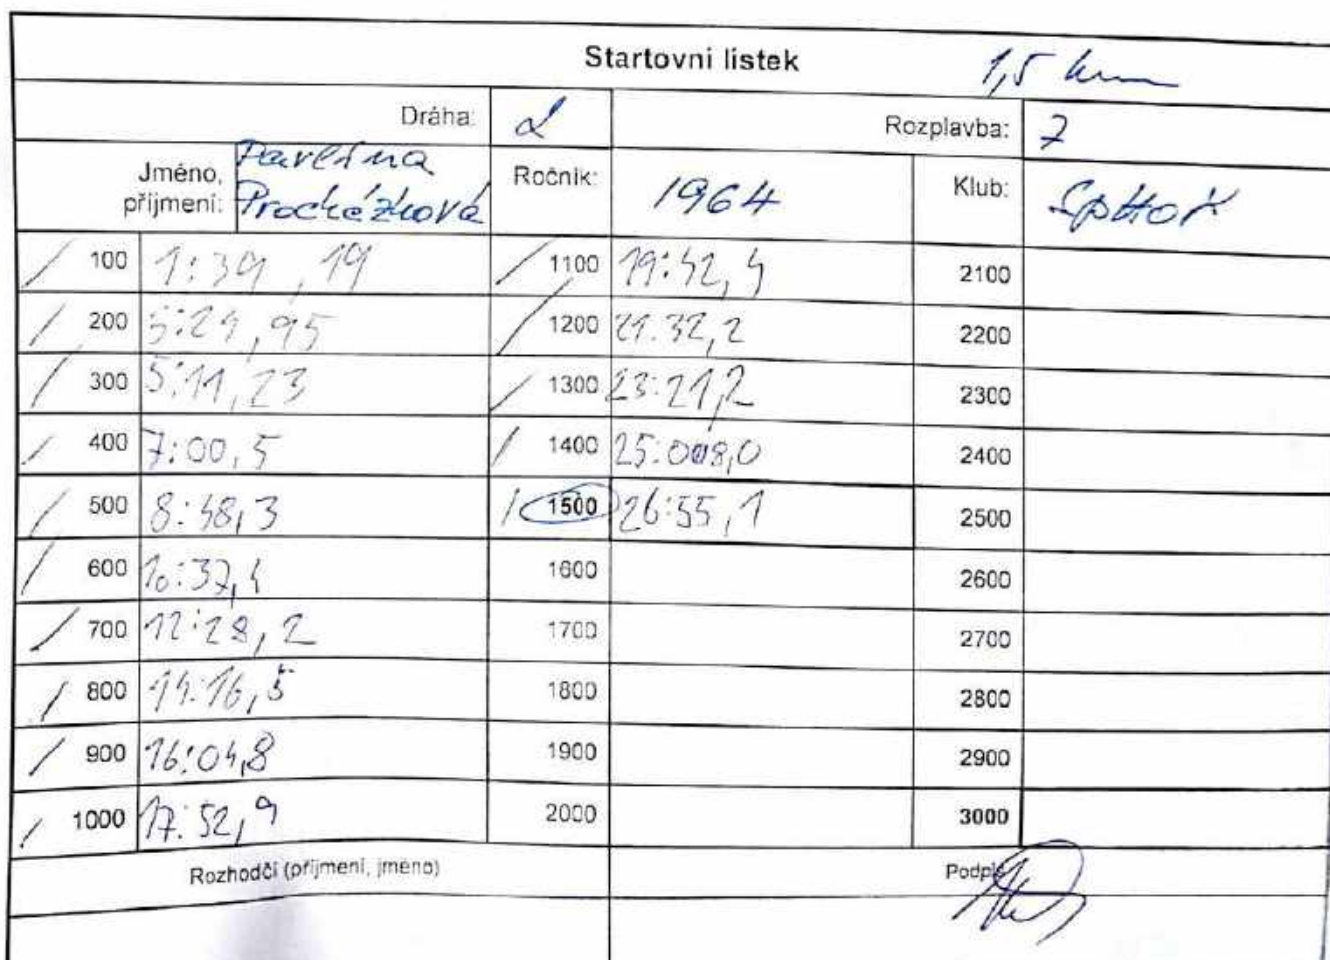 Startovní lístek 1,5 km
Dráha: 2 Rozplavba: 7
Jméno, příjmení: Pavlína Procházková Ročník: 1964 Klub: SpHoK
100 1:39,19 1100 19:42,4 2100
200 5:21,95 1200 21.32,2 2200
300 5:11,23 1300 23:21,2 2300
400 7:00,5 1400 25:008,0 2400
500 8:48,3 1500 26:55,1 2500
600 10:37,4 1600 2600
700 12:28,2 1700 2700
800 14:16,5 1800 2800
900 16:04,8 1900 2900
1000 17:52,9 2000 3000
Rozhodčí (příjmení, jméno) Podpis